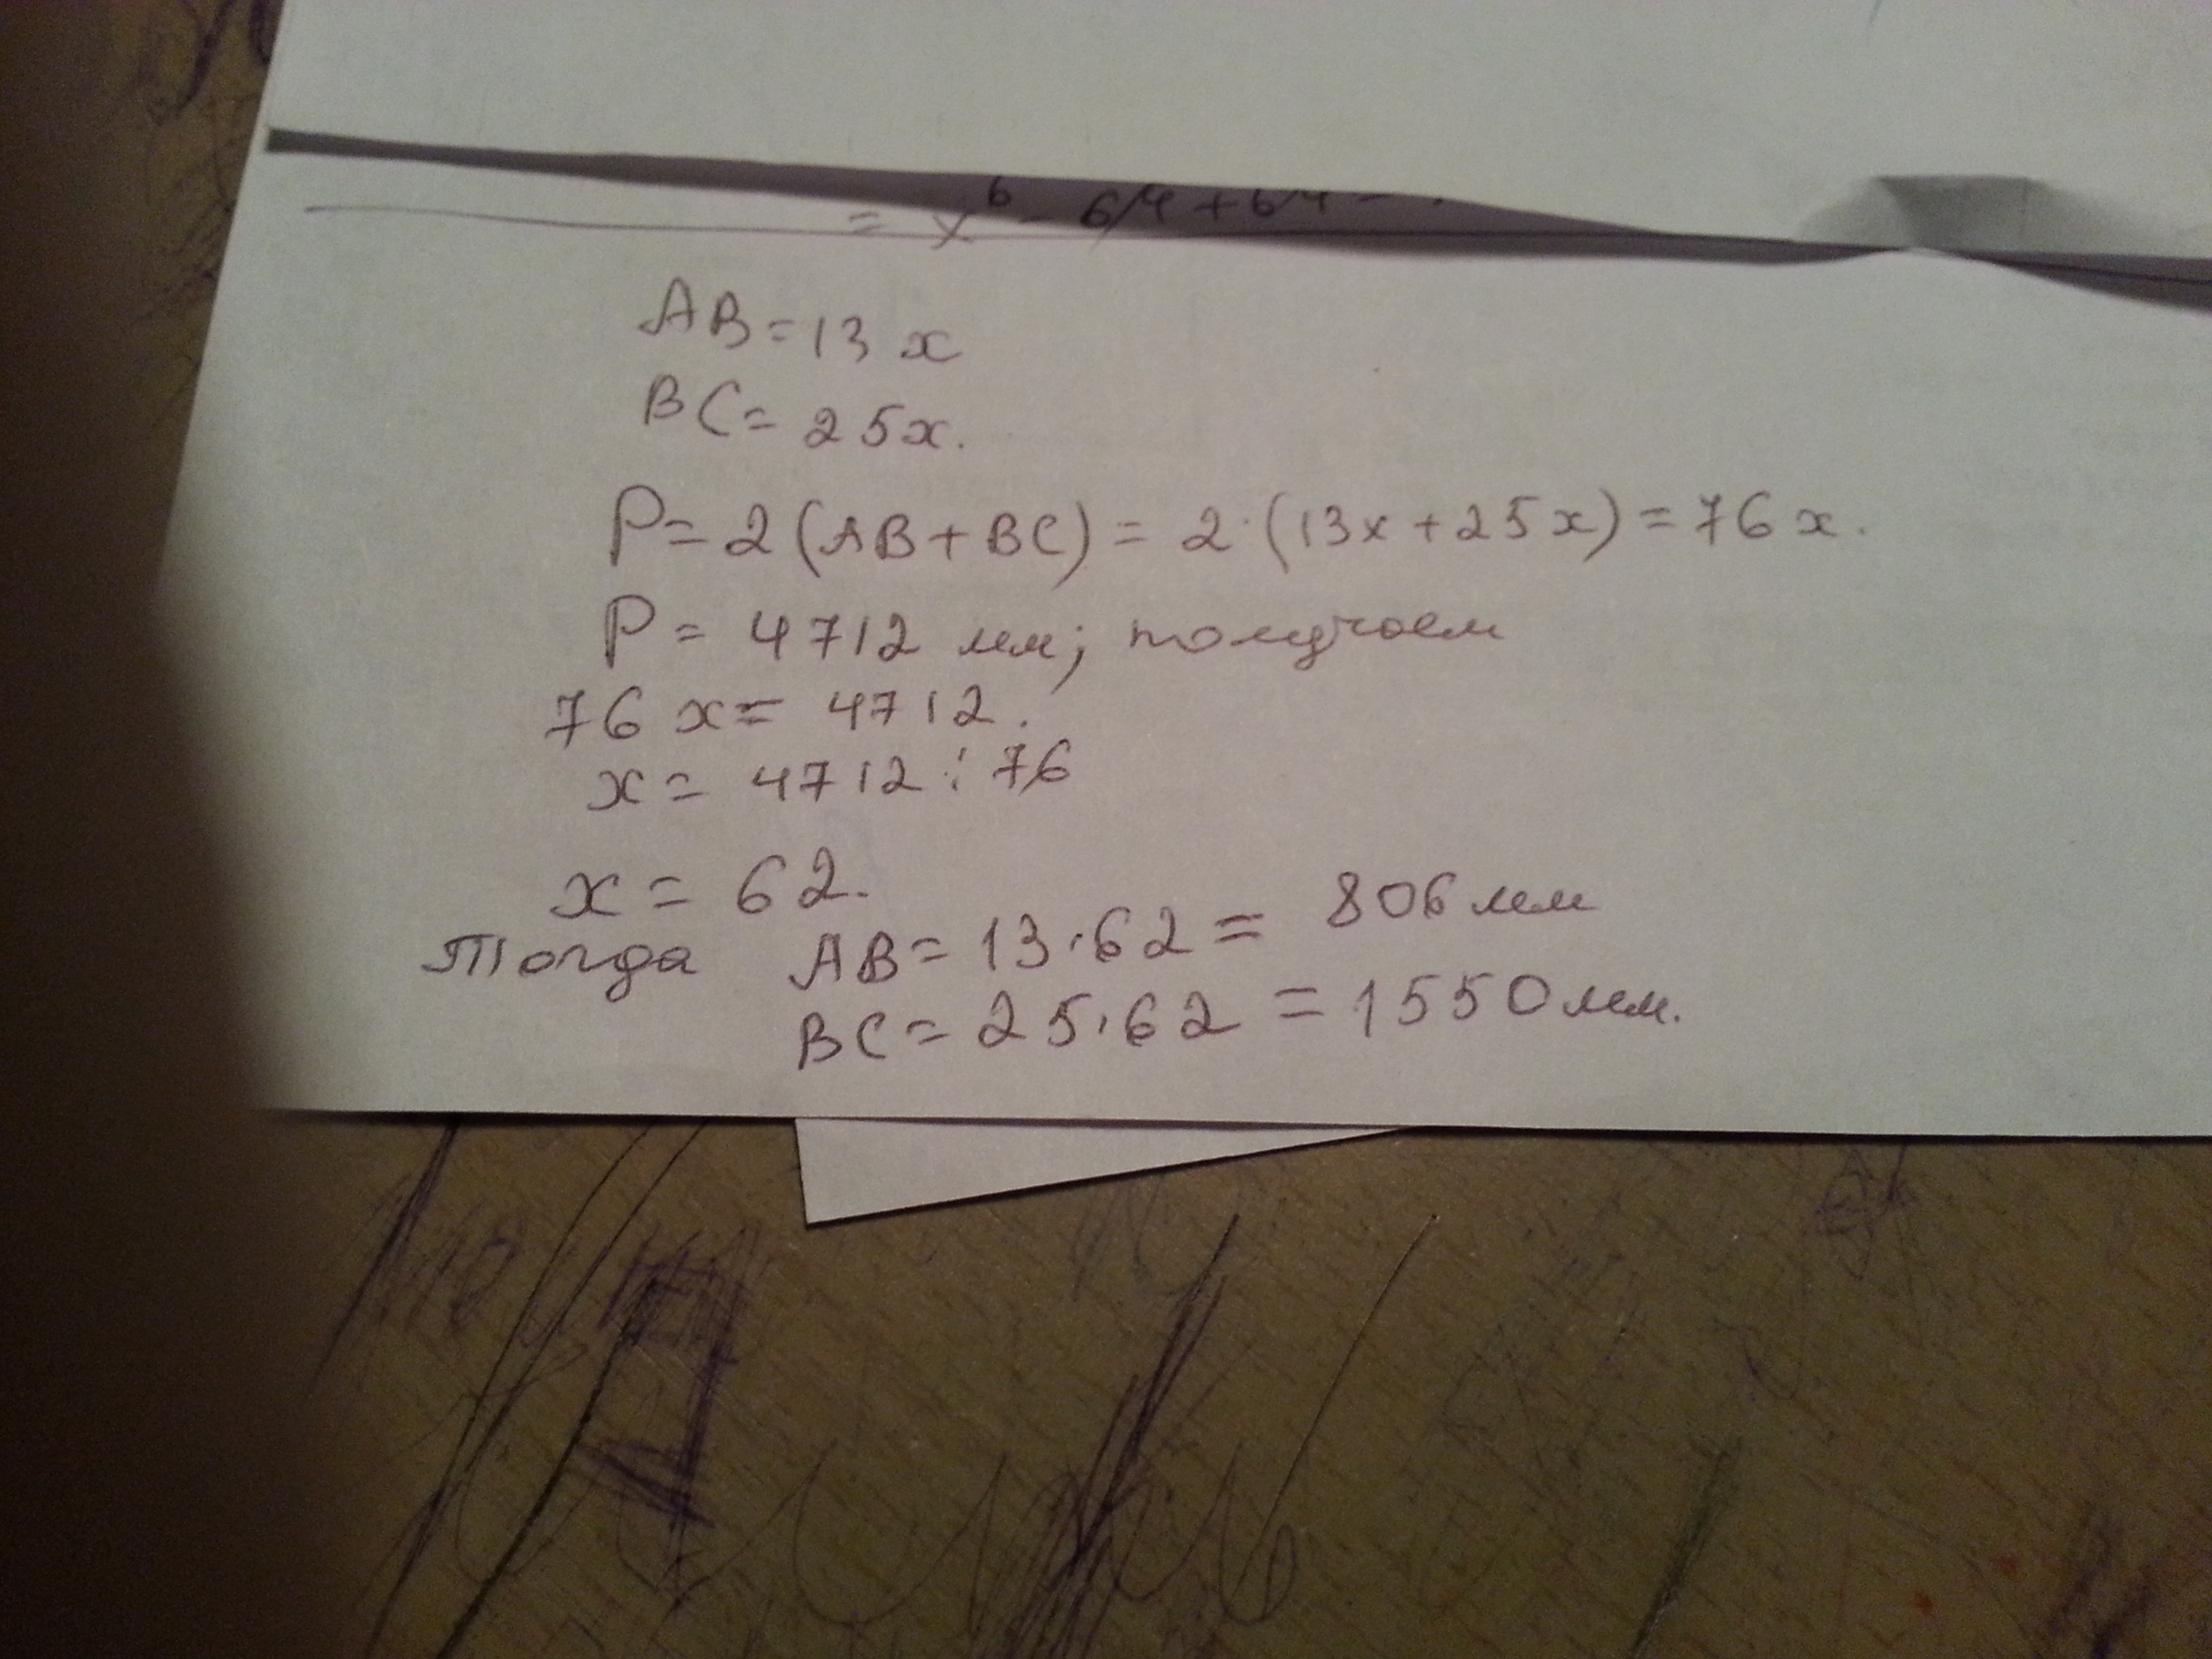 = x⁶ - 64 + 64 -
AB = 13x
BC = 25x.
P = 2(AB + BC) = 2·(13x + 25x) = 76x.
P = 4712 мм; получаем
76x = 4712.
x = 4712 : 76
x = 62.
Тогда AB = 13·62 = 806 мм
BC = 25·62 = 1550 мм.